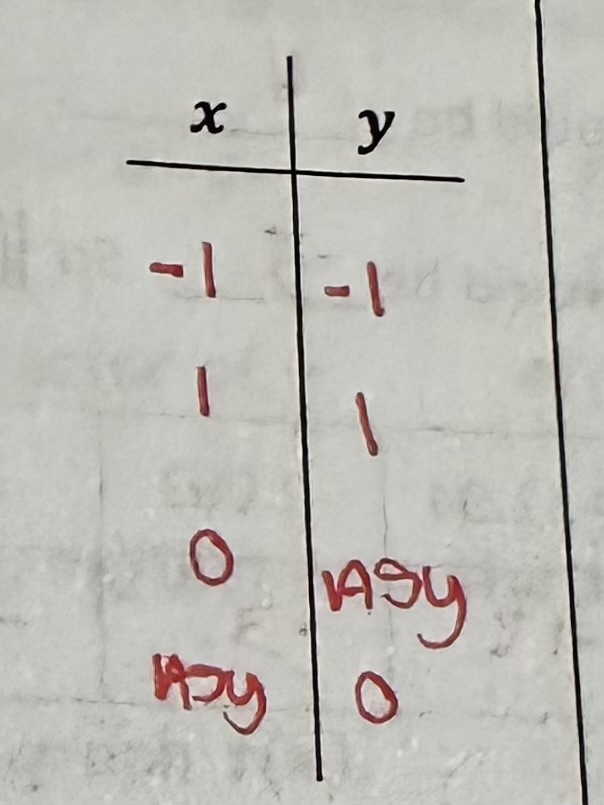 x y
-1 -1
1 1
0 Asy
Asy 0